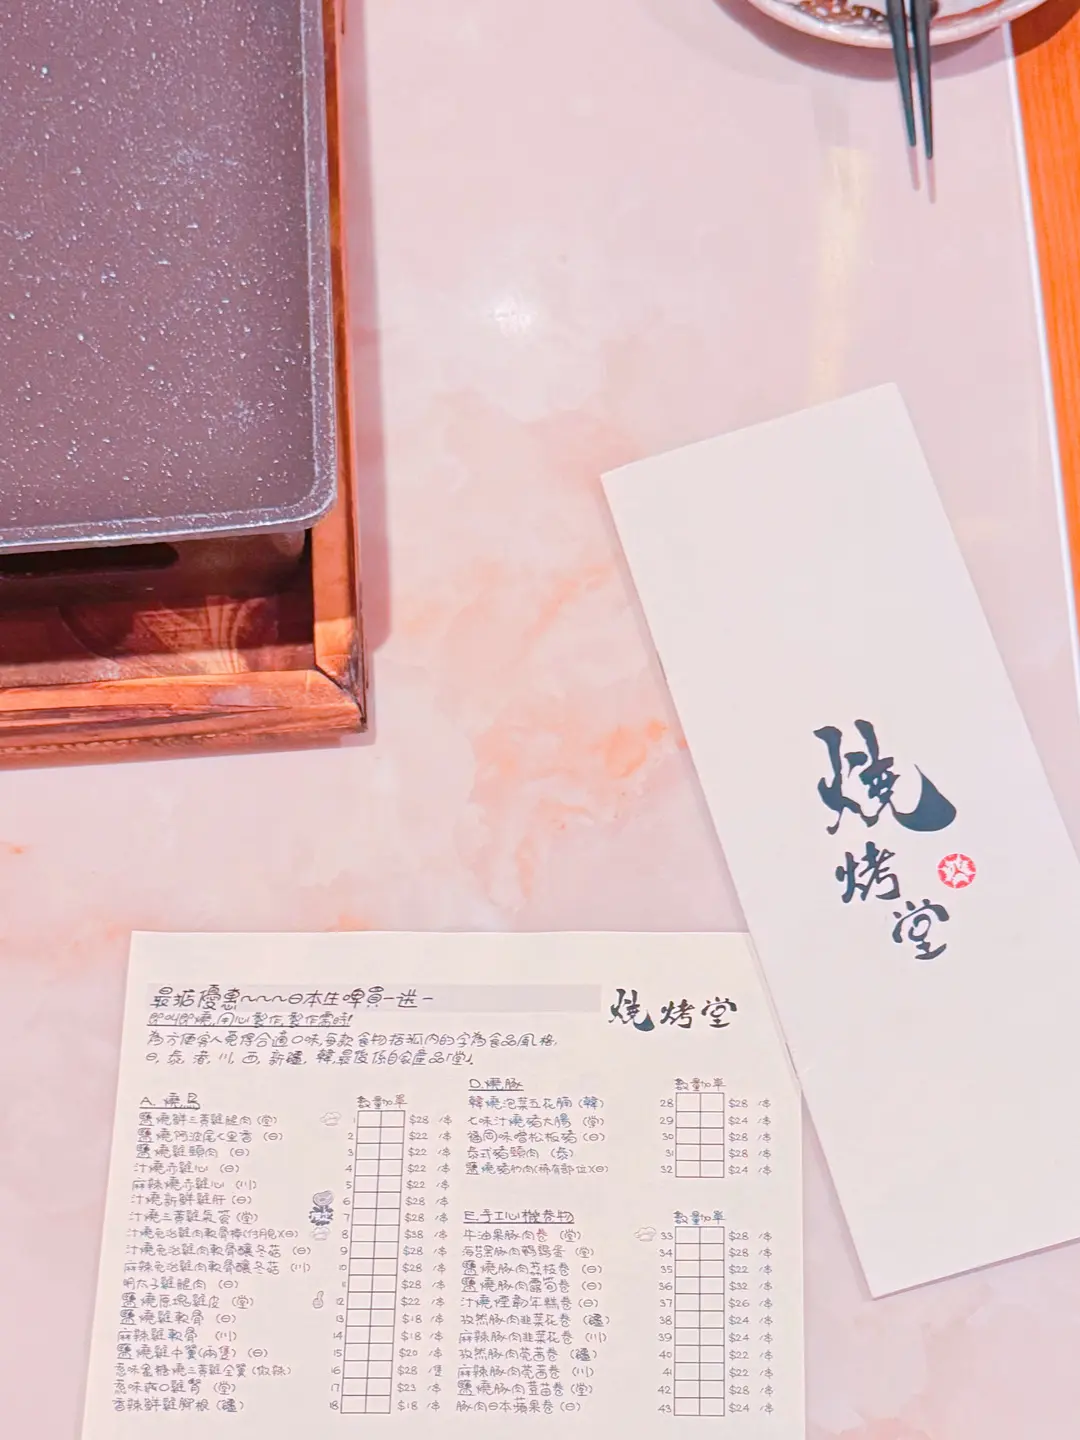 燒
烤
堂
最抵優惠～～～日本生啤買一送一
燒烤堂
即叫即燒,用心製作,製作需時!
為方便客人覓得合適口味,每款食物括弧內的字為食品風格,
日,泰,港,川,西,新疆,韓,最後係自家產品「堂」
A. 燒鳥 數量加單
鹽燒鮮三黃雞腿肉 (堂) 1 $28 /本
鹽燒阿波尾七里香 (日) 2 $22 /本
鹽燒雞頸肉 (日) 3 $22 /本
汁燒赤雞心 (日) 4 $22 /本
麻辣燒赤雞心 (川) 5 $22 /本
汁燒新鮮雞肝 (日) 6 $28 /本
汁燒三黃雞氣管 (堂) 7 $28 /本
汁燒免治雞肉軟骨棒(付月見)(日) 8 $38 /本
汁燒免治雞肉軟骨釀冬菇 (日) 9 $28 /本
麻辣免治雞肉軟骨釀冬菇 (川) 10 $28 /本
明太子雞腿肉 (日) 11 $28 /本
鹽燒原塊雞皮 (堂) 12 $22 /本
鹽燒雞軟骨 (日) 13 $18 /本
麻辣雞軟骨 (川) 14 $18 /本
鹽燒雞中翼(兩隻) (日) 15 $20 /本
蔥味蜜糖燒三黃雞全翼 (微辣) 16 $28 /隻
蔥味 雞腎 (堂) 17 $23 /本
香辣鮮雞腳根 (疆) 18 $18 /本
D. 燒豚 數量加單
韓燒泡菜五花腩 (韓) 28 $28 /本
七味汁燒豬大腸 (堂) 29 $24 /本
福岡味噌松板豬 (日) 30 $28 /本
泰式豬頸肉 (泰) 31 $28 /本
鹽燒豬 肉(稀有部位)(日) 32 $24 /本
E. 手工心機卷物 數量加單
牛油果豚肉卷 (堂) 33 $28 /本
海苔黑豚肉鵪鶉蛋 (堂) 34 $28 /本
鹽燒豚肉荔枝卷 (日) 35 $22 /本
鹽燒豚肉露筍卷 (日) 36 $32 /本
汁燒煙韌年糕卷 (日) 37 $26 /本
孜然豚肉韭菜花卷 (疆) 38 $24 /本
麻辣豚肉韭菜花卷 (川) 39 $24 /本
孜然豚肉芫茜卷 (疆) 40 $22 /本
麻辣豚肉芫茜卷 (川) 41 $22 /本
鹽燒豚肉荳苗卷 (堂) 42 $28 /本
豚肉日本蘋果卷 (日) 43 $24 /本